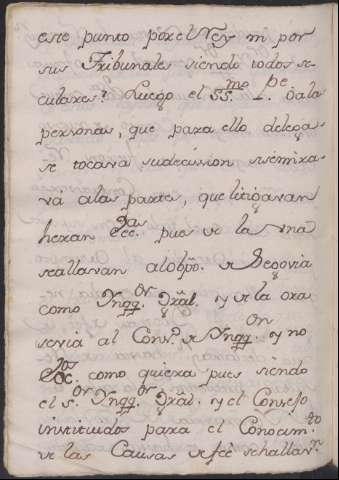 este punto por el Rey ni por
sus Tribunales siendo todos se-
culares? Luego el SS.mo Pe. o ala
personas, que para ello delega-
se tocava su decission si emira-
va alas partes, que litigavan
heran Eccas. pues de la una
se allavan al obpo. de Segovia
como Ynqqor. Gral. y de la otra
se veia al Conso. de Ynqqon y no
Ecc.os como quiera pues siendo
el s.or Ynqqor. Gral. y el Consejo
instituidos para el Conocim.to
de las Causas de feè se hallavn.